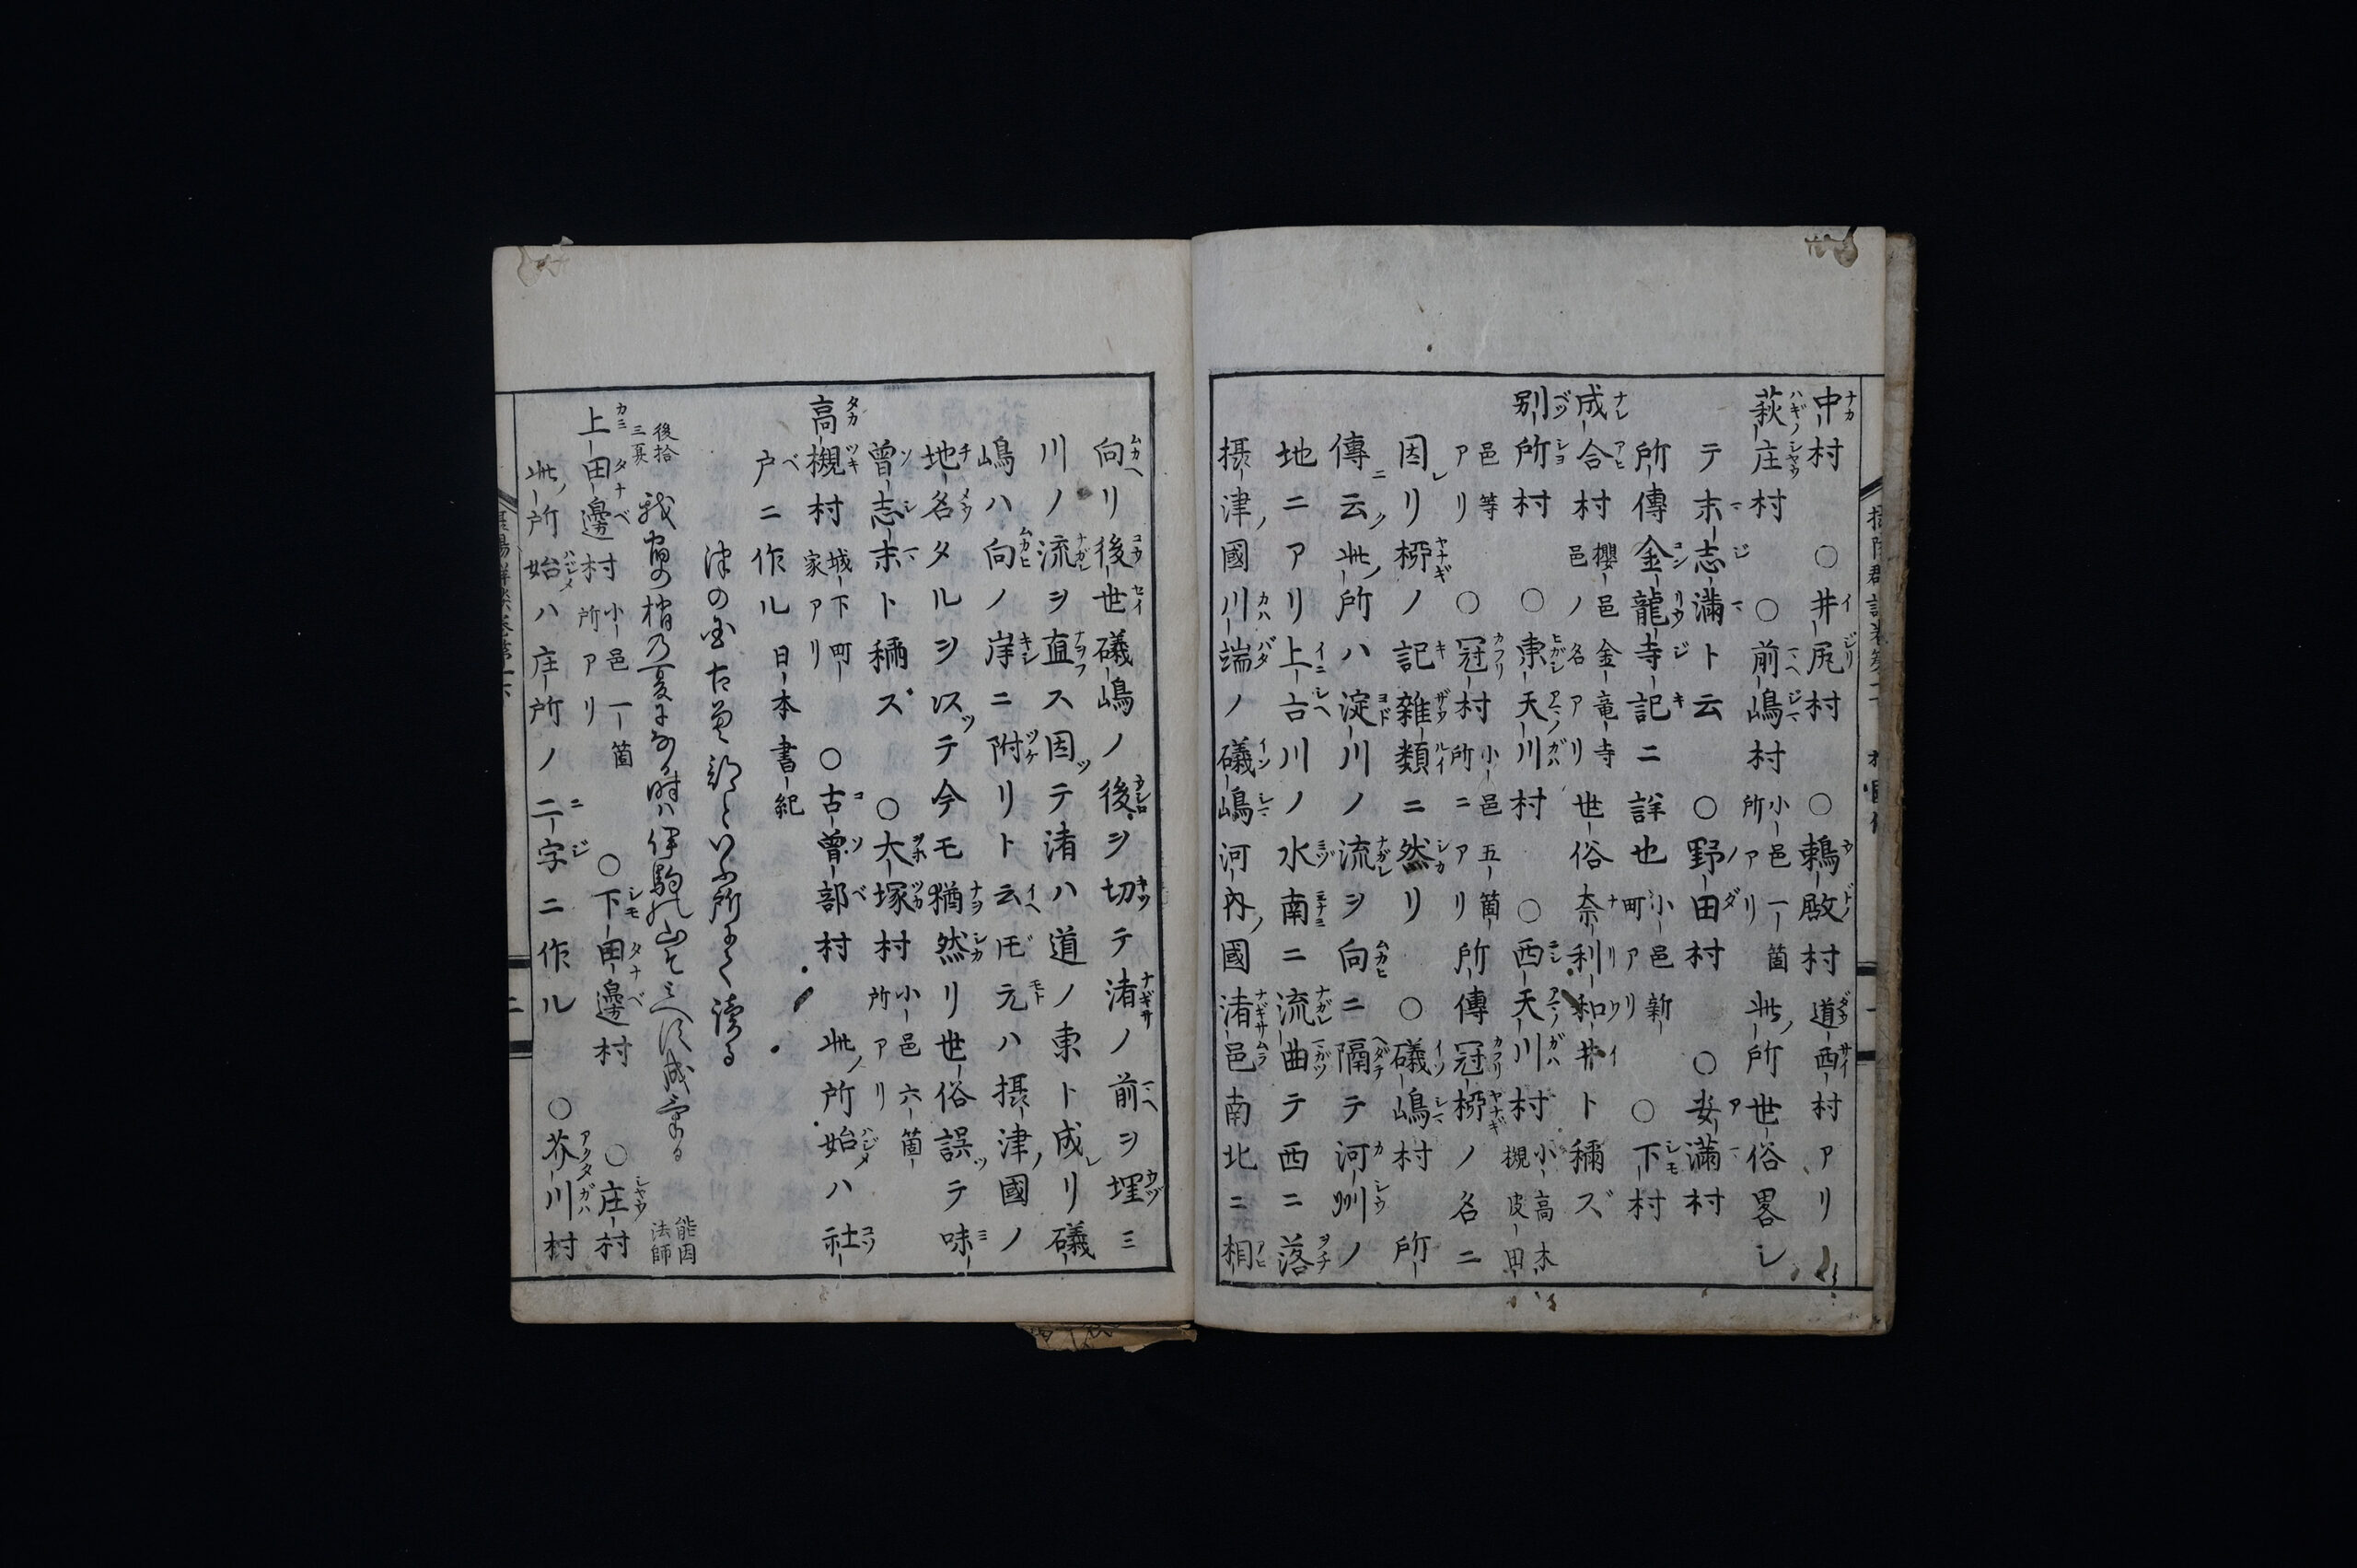 中村　○井尻村　○鵜殿村 道西村アリ
萩庄村　○前嶋村 小邑一箇所アリ 此所世俗畧シ
テ末志滿ト云　○野田村　○安滿村
所傳金龍寺記ニ詳也 小邑新町アリ　○下村
成合村 櫻邑金竜寺邑ノ名アリ 世俗奈利和井ト稱ズ
別所村　○東天川村　○西天川村 小高木槻皮田
邑等アリ　○冠村 小邑五箇所ニアリ 所傳冠栁ノ名ニ
因リ栁ノ記雜類ニ然リ　○礒嶋村　所
傳云此所ハ淀川ノ流ヲ向ニ隔テ河州ノ
地ニアリ上古川ノ水南ニ流曲テ西ニ落
摂津國川端ノ礒嶋河内國渚邑南北ニ相
向リ後世礒嶋ノ後ヲ切テ渚ノ前ヲ埋ミ
川ノ流ヲ直ス因テ渚ハ道ノ東ト成リ礒
嶋ハ向ノ岸ニ附リト云ヘ𪜈元ハ摂津國ノ
地名タルヲ以テ今モ猶然リ世俗誤テ味
曾志末ト稱ス　○大塚村 小邑六箇所アリ
高槻村 城下町家アリ　○古曾部村　此所始ハ社
戸ニ作ル日本書紀
津の国古曽部といふ所にて讀る
後拾三夏 我宿の梢乃夏になる時ハ伊駒の山そ 能因法師
上田邊村 小邑一箇所アリ　○下田邊村　○庄村
此所始ハ庄所ノ二字ニ作ル　○芥川村